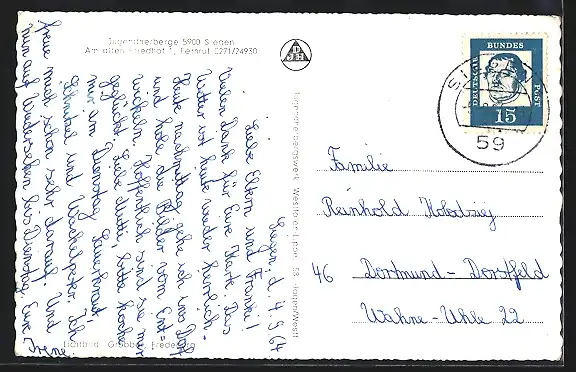 Jugendherberge 5900 Siegen
Am alten Friedhof 1, Fernruf 0271/24930
Siegen, d. 4.9.64
Liebe Eltern und Franki!
Vielen Dank für Eure Karte. Das
Wetter ist heute wieder herrlich.
Heute nachmittag gehe ich ins Dorf
und hole die Bilder vom Ent=
wickeln. Hoffentlich sind sie mir
geglückt. Liebe Mutti, bitte koche
mir am Dienstag Sauerkraut
Schnitzel und Wackelpeter. Ich
freue mich schon sehr darauf. Und
nun auf Wiedersehen bis Dienstag Eure
Irene.
Lichtbild Grobbel, Fredeburg
Jugendherbergswerk Westfalen-Lippe, 58 Hagen/Westf.
DJH
DEUTSCHE
BUNDES
POST
15
59
Familie
Reinhold
46 Dortmund-Dorstfeld
Wahne-Uhle 22